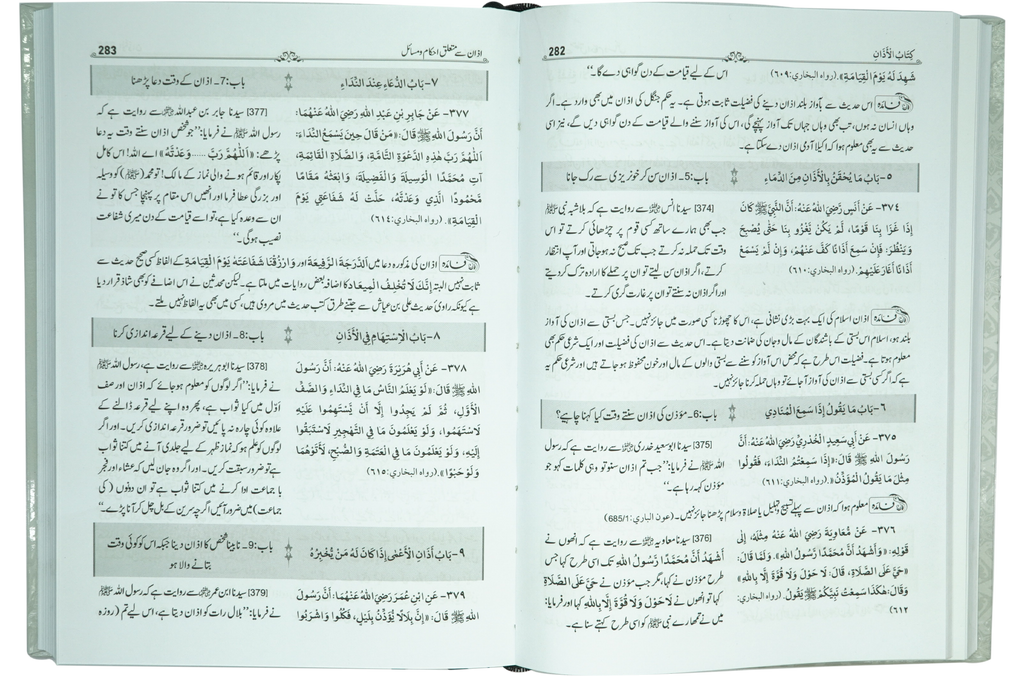 282
كِتَابُ الْأَذَانِ
شَهِدَ لَهُ يَوْمَ الْقِيَامَةِ». (رواه البخاري: ٦٠٩)
اس کے لیے قیامت کے دن گواہی دے گا۔‘‘
فائدہ اس حدیث سے بآواز بلند اذان دینے کی فضیلت ثابت ہوتی ہے۔ یہ حکم جنگل کی اذان میں بھی وارد ہے۔ اگر
وہاں انسان نہ ہوں، تب بھی وہاں جہاں تک آواز پہنچے گی، اس کی آواز سننے والے قیامت کے دن گواہی دیں گے، نیز اسی
حدیث سے یہ بھی معلوم ہوا کہ اکیلا آدمی اذان دے سکتا ہے۔
٥- بَابُ مَا يُحْقَنُ بِالْأَذَانِ مِنَ الدِّمَاءِ
باب:5۔ اذان سن کر خونریزی سے رک جانا
٣٧٤- عَنْ أَنَسٍ رَضِيَ اللهُ عَنْهُ: أَنَّ النَّبِيَّ ﷺ كَانَ
إِذَا غَزَا بِنَا قَوْمًا، لَمْ يَكُنْ يَغْزُو بِنَا حَتَّى يُصْبِحَ
وَيَنْظُرَ، فَإِنْ سَمِعَ أَذَانًا كَفَّ عَنْهُمْ، وَإِنْ لَمْ يَسْمَعْ
أَذَانًا أَغَارَ عَلَيْهِمْ. (رواه البخاري: ٦١٠)
[374] سیدنا انس ؓ سے روایت ہے کہ بلاشبہ نبی
جب بھی ہمارے ساتھ کسی قوم پر چڑھائی کرتے تو اس
وقت تک حملہ نہ کرتے جب تک صبح نہ ہو جاتی اور آپ انتظار
کرتے، اگر اذان سن لیتے تو ان پر حملے کا ارادہ ترک کر دیتے
اور اگر اذان نہ سنتے تو ان پر غارت گری کرتے۔
فائدہ اذان اسلام کی ایک بہت بڑی نشانی ہے، اس کا چھوڑنا کسی صورت میں جائز نہیں۔ جس بستی سے اذان کی آواز
بلند ہو، اسلام اس بستی کے باشندگان کے مال و جان کی ضمانت دیتا ہے۔ اس حدیث سے اذان کی فضیلت اور ایک شرعی حکم بھی
معلوم ہوتا ہے۔ فضیلت اس طرح ہے کہ محض اس آواز کو سننے سے بستی والوں کے مال اور خون محفوظ ہو جاتے ہیں اور شرعی حکم یہ
ہے کہ اگر کسی بستی سے اذان کی آواز آ جائے تو وہاں حملہ کرنا جائز نہیں۔
٦- بَابُ مَا يَقُولُ إِذَا سَمِعَ الْمُنَادِي
باب:6۔ مؤذن کی اذان سنتے وقت کیا کہنا چاہیے؟
٣٧٥- عَنْ أَبِي سَعِيدٍ الْخُدْرِيِّ رَضِيَ اللهُ عَنْهُ: أَنَّ
رَسُولَ اللهِ ﷺ قَالَ: «إِذَا سَمِعْتُمُ النِّدَاءَ، فَقُولُوا
مِثْلَ مَا يَقُولُ الْمُؤَذِّنُ». (رواه البخاري: ٦١١)
[375] سیدنا ابوسعید خدری ؓ سے روایت ہے کہ رسول
اللہ ﷺ نے فرمایا: ’’جب تم اذان سنو تو وہی کلمات کہو جو
مؤذن کہہ رہا ہے۔‘‘
فائدہ معلوم ہوا کہ اذان سے پہلے تسبیح و تہلیل یا صلاۃ و سلام پڑھنا جائز نہیں۔ (عون الباري: 685/1)
٣٧٦- عَنْ مُعَاوِيَةَ رَضِيَ اللهُ عَنْهُ مِثْلَهُ، إِلَى
قَوْلِهِ: «وَأَشْهَدُ أَنَّ مُحَمَّدًا رَسُولُ اللهِ». وَلَمَّا قَالَ:
«حَيَّ عَلَى الصَّلَاةِ، قَالَ: لَا حَوْلَ وَلَا قُوَّةَ إِلَّا بِاللهِ»
وَقَالَ: هٰكَذَا سَمِعْتُ نَبِيَّكُمْ ﷺ يَقُولُ. (رواه البخاري:
٦١٢
[376] سیدنا معاویہ ؓ سے روایت ہے کہ انھوں نے
أَشْهَدُ أَنَّ مُحَمَّدًا رَّسُولُ اللهِ تک اسی طرح کہا جس
طرح مؤذن نے کہا، مگر جب مؤذن نے حَيَّ عَلَى الصَّلَاةِ
کہا تو انھوں نے لَا حَوْلَ وَلَا قُوَّةَ إِلَّا بِاللهِ کہا اور فرمایا:
میں نے تمھارے نبی ﷺ کو اسی طرح کہتے سنا ہے۔
283
اذان سے متعلق احکام و مسائل
٧- بَابُ الدُّعَاءِ عِنْدَ النِّدَاءِ
باب:7۔ اذان کے وقت دعا پڑھنا
٣٧٧- عَنْ جَابِرِ بْنِ عَبْدِ اللهِ رَضِيَ اللهُ عَنْهُمَا:
أَنَّ رَسُولَ اللهِ ﷺ قَالَ: «مَنْ قَالَ حِينَ يَسْمَعُ النِّدَاءَ:
اَللّٰهُمَّ رَبَّ هٰذِهِ الدَّعْوَةِ التَّامَّةِ، وَالصَّلَاةِ الْقَائِمَةِ،
آتِ مُحَمَّدًا الْوَسِيلَةَ وَالْفَضِيلَةَ، وَابْعَثْهُ مَقَامًا
مَحْمُودًا الَّذِي وَعَدْتَهُ، حَلَّتْ لَهُ شَفَاعَتِي يَوْمَ
الْقِيَامَةِ». (رواه البخاري: ٦١٤)
[377] سیدنا جابر بن عبداللہ ؓ سے روایت ہے کہ
رسول اللہ ﷺ نے فرمایا: ’’جو شخص اذان سنتے وقت یہ دعا
پڑھے: «اَللّٰهُمَّ رَبَّ ..... وَعَدْتَهُ» اے اللہ! اس کامل
پکار اور قائم ہونے والی نماز کے مالک! تو محمد (ﷺ) کو وسیلہ
اور بزرگی عطا فرما اور انھیں اس مقام پر پہنچا جس کا تو نے
ان سے وعدہ کیا ہے، تو اسے قیامت کے دن میری شفاعت
نصیب ہوگی۔‘‘
فائدہ اذان کی مذکورہ دعا میں اَلدَّرَجَةَ الرَّفِيعَةَ اور وَارْزُقْنَا شَفَاعَتَهُ يَوْمَ الْقِيَامَةِ کے الفاظ کسی صحیح حدیث سے
ثابت نہیں البتہ إِنَّكَ لَا تُخْلِفُ الْمِيعَادَ کا اضافہ بعض روایات میں ملتا ہے۔ لیکن محدثین نے اس اضافے کو بھی شاذ قرار دیا
ہے کیونکہ راویٔ حدیث علی بن عیاش سے جتنے طرق کتب حدیث میں مروی ہیں، کسی میں بھی یہ الفاظ نہیں ملتے۔
٨- بَابُ الْإِسْتِهَامِ فِي الْأَذَانِ
باب:8۔ اذان دینے کے لیے قرعہ اندازی کرنا
٣٧٨- عَنْ أَبِي هُرَيْرَةَ رَضِيَ اللهُ عَنْهُ: أَنَّ رَسُولَ
اللهِ ﷺ قَالَ: «لَوْ يَعْلَمُ النَّاسُ مَا فِي النِّدَاءِ وَالصَّفِّ
الْأَوَّلِ، ثُمَّ لَمْ يَجِدُوا إِلَّا أَنْ يَسْتَهِمُوا عَلَيْهِ
لَاسْتَهَمُوا، وَلَوْ يَعْلَمُونَ مَا فِي التَّهْجِيرِ لَاسْتَبَقُوا
إِلَيْهِ، وَلَوْ يَعْلَمُونَ مَا فِي الْعَتَمَةِ وَالصُّبْحِ، لَأَتَوْهُمَا
وَلَوْ حَبْوًا». (رواه البخاري: ٦١٥)
[378] سیدنا ابوہریرہ ؓ سے روایت ہے، رسول اللہ ﷺ
نے فرمایا: ’’اگر لوگوں کو معلوم ہو جائے کہ اذان اور صف
اوّل میں کیا ثواب ہے، پھر وہ اپنے لیے قرعہ ڈالنے کے
علاوہ کوئی چارہ نہ پائیں تو ضرور قرعہ اندازی کریں۔ اور اگر
لوگوں کو علم ہو کہ نماز ظہر کے لیے جلدی آنے میں کتنا ثواب
ہے تو ضرور سبقت کریں۔ اور اگر وہ جان لیں کہ عشاء اور فجر
با جماعت ادا کرنے میں کتنا ثواب ہے تو ان دونوں (کی
جماعت) میں ضرور آئیں اگرچہ سرین کے بل چل کر آنا پڑے۔‘‘
٩- بَابُ أَذَانِ الْأَعْمٰى إِذَا كَانَ لَهُ مَنْ يُخْبِرُهُ
باب:9۔ نابینا شخص کا اذان دینا جبکہ اس کو کوئی وقت
بتانے والا ہو
٣٧٩- عَنِ ابْنِ عُمَرَ رَضِيَ اللهُ عَنْهُمَا: أَنَّ رَسُولَ
اللهِ ﷺ قَالَ: «إِنَّ بِلَالًا يُؤَذِّنُ بِلَيْلٍ، فَكُلُوا وَاشْرَبُوا
[379] سیدنا ابن عمر ؓ سے روایت ہے کہ رسول اللہ ﷺ
نے فرمایا: ’’بلال رات کو اذان دیتا ہے، اس لیے تم (روزہ